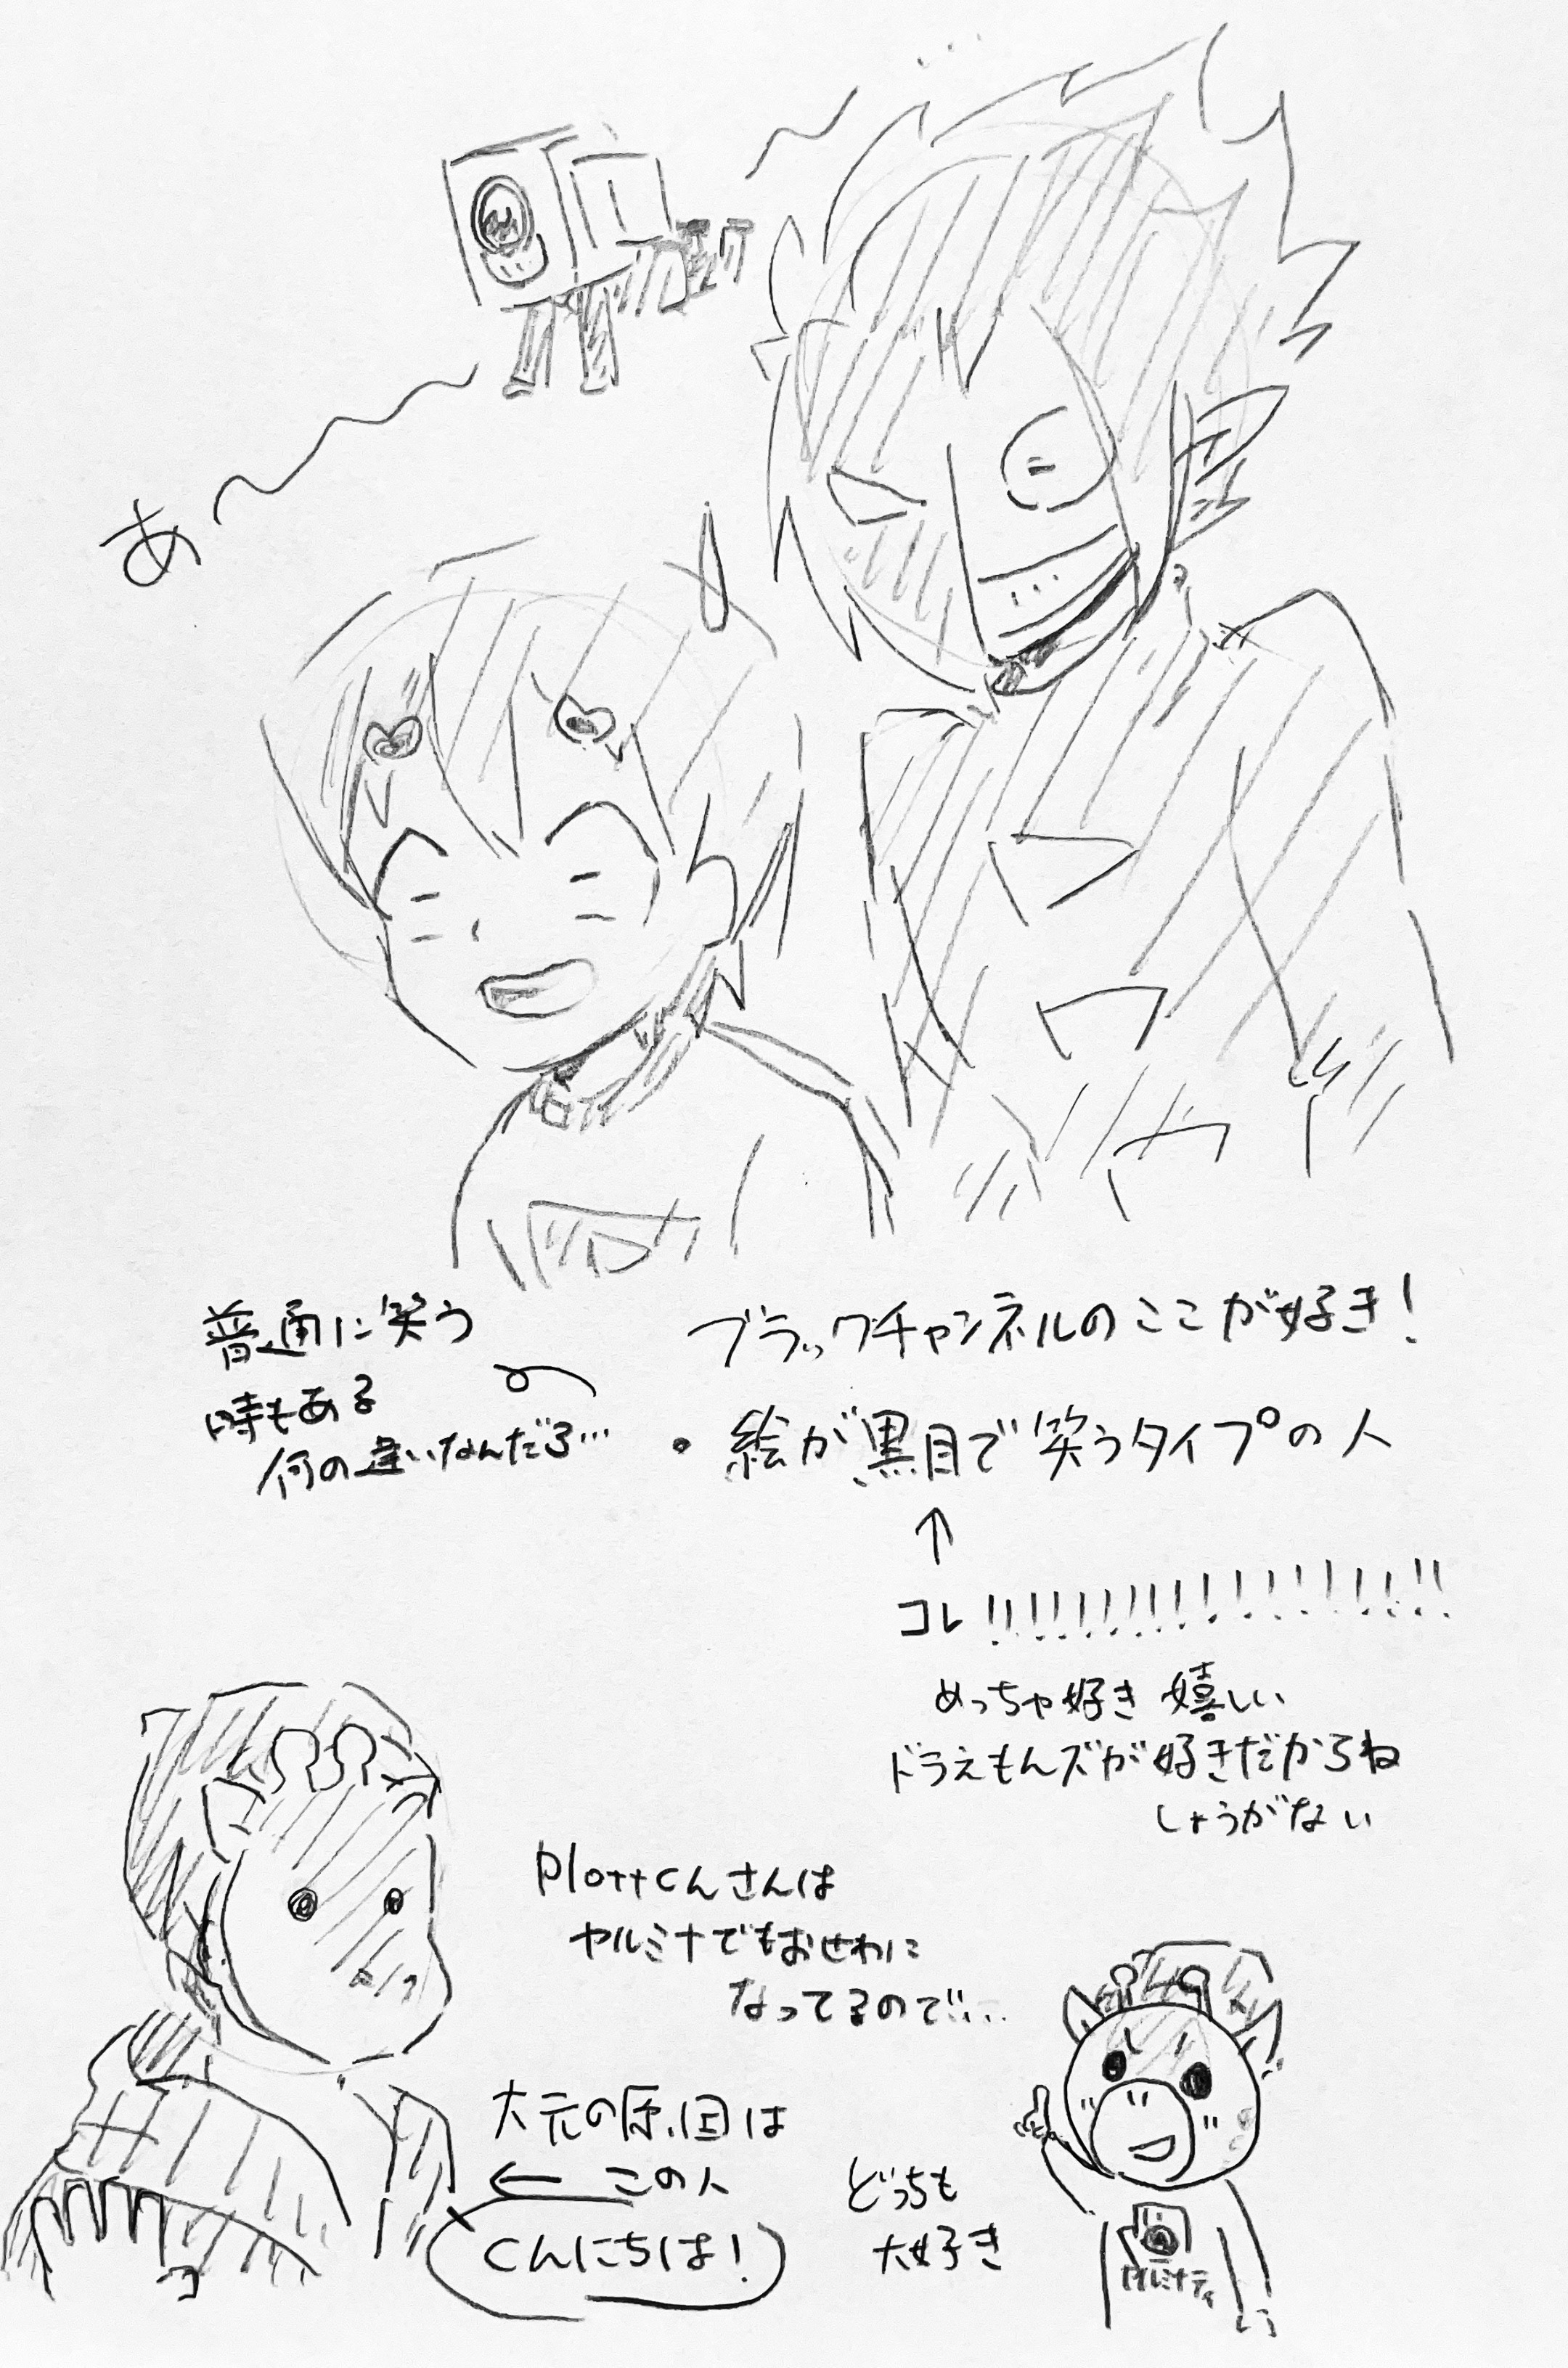 あ〜〜
普通に笑う
時もある
何の違いなんだろ…
ブラックチャンネルのここが好き!
・絵が黒目で笑うタイプの人
↑
コレ!!!!!!!!!!!!!!!!!!!!
めっちゃ好き 嬉しい
ドラえもんズが好きだからね
しょうがない
Plottくんさんは
ヤルミナでもおせわに
なってるので…
大元の原因は
← この人
くんにちは!
どっちも
大好き